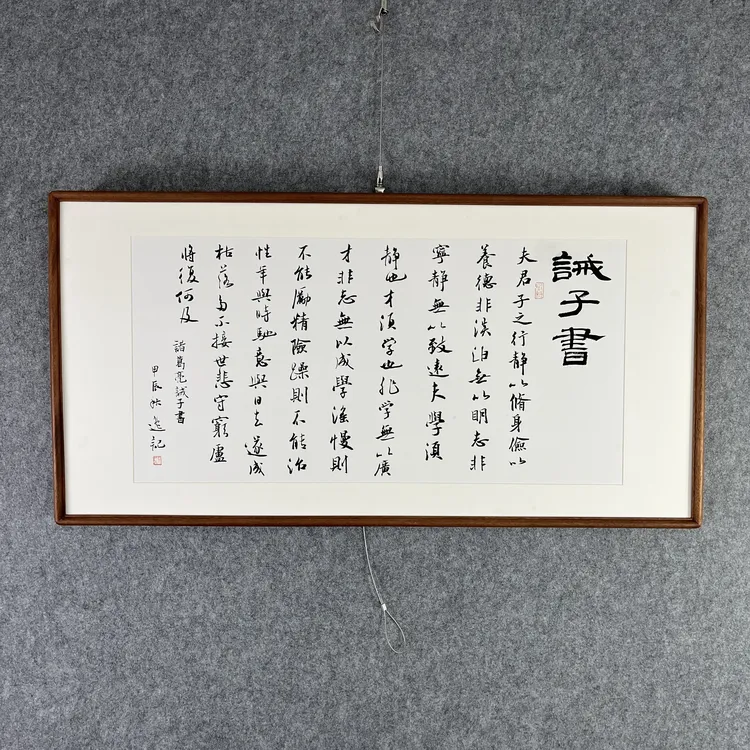 誡子書
夫君子之行静以脩身儉以
養德非淡泊无以明志非
寧静無以致遠夫學須
静也才須学也非学無以廣
才非志無以成學滛慢則
不能勵精險躁則不能治
性年與時馳意與日去遂成
枯落多不接世悲守窮盧
將復何及
諸葛亮誡子書
甲辰秋逸記